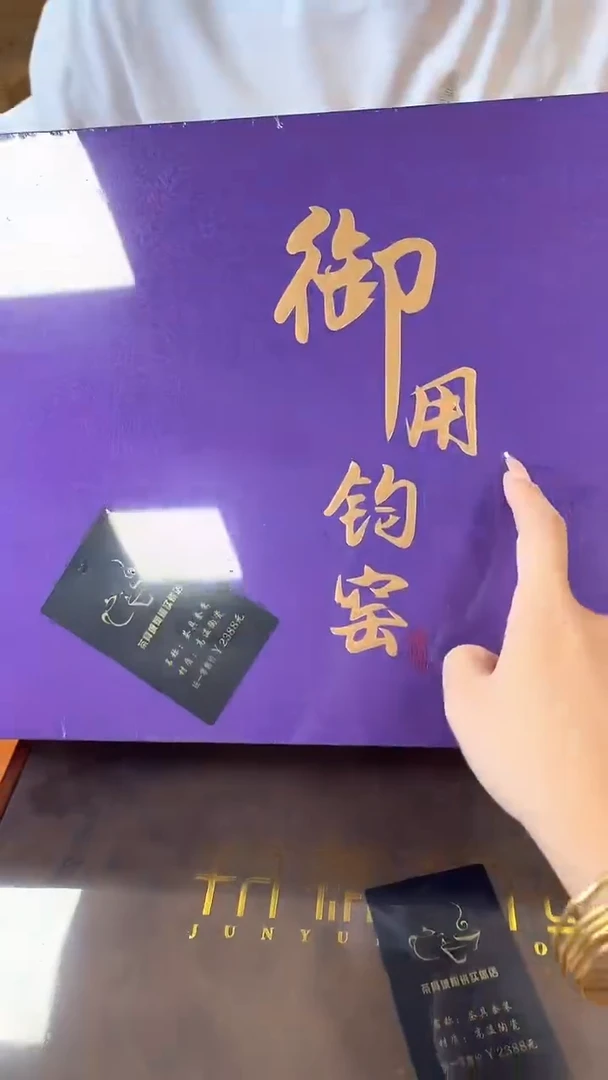 御用钧窑
名称：茶具套装
材质：高温陶瓷
统一零售价￥2388元
JUNYU
O
名称：茶具套装
材质：高温陶瓷
￥2388元